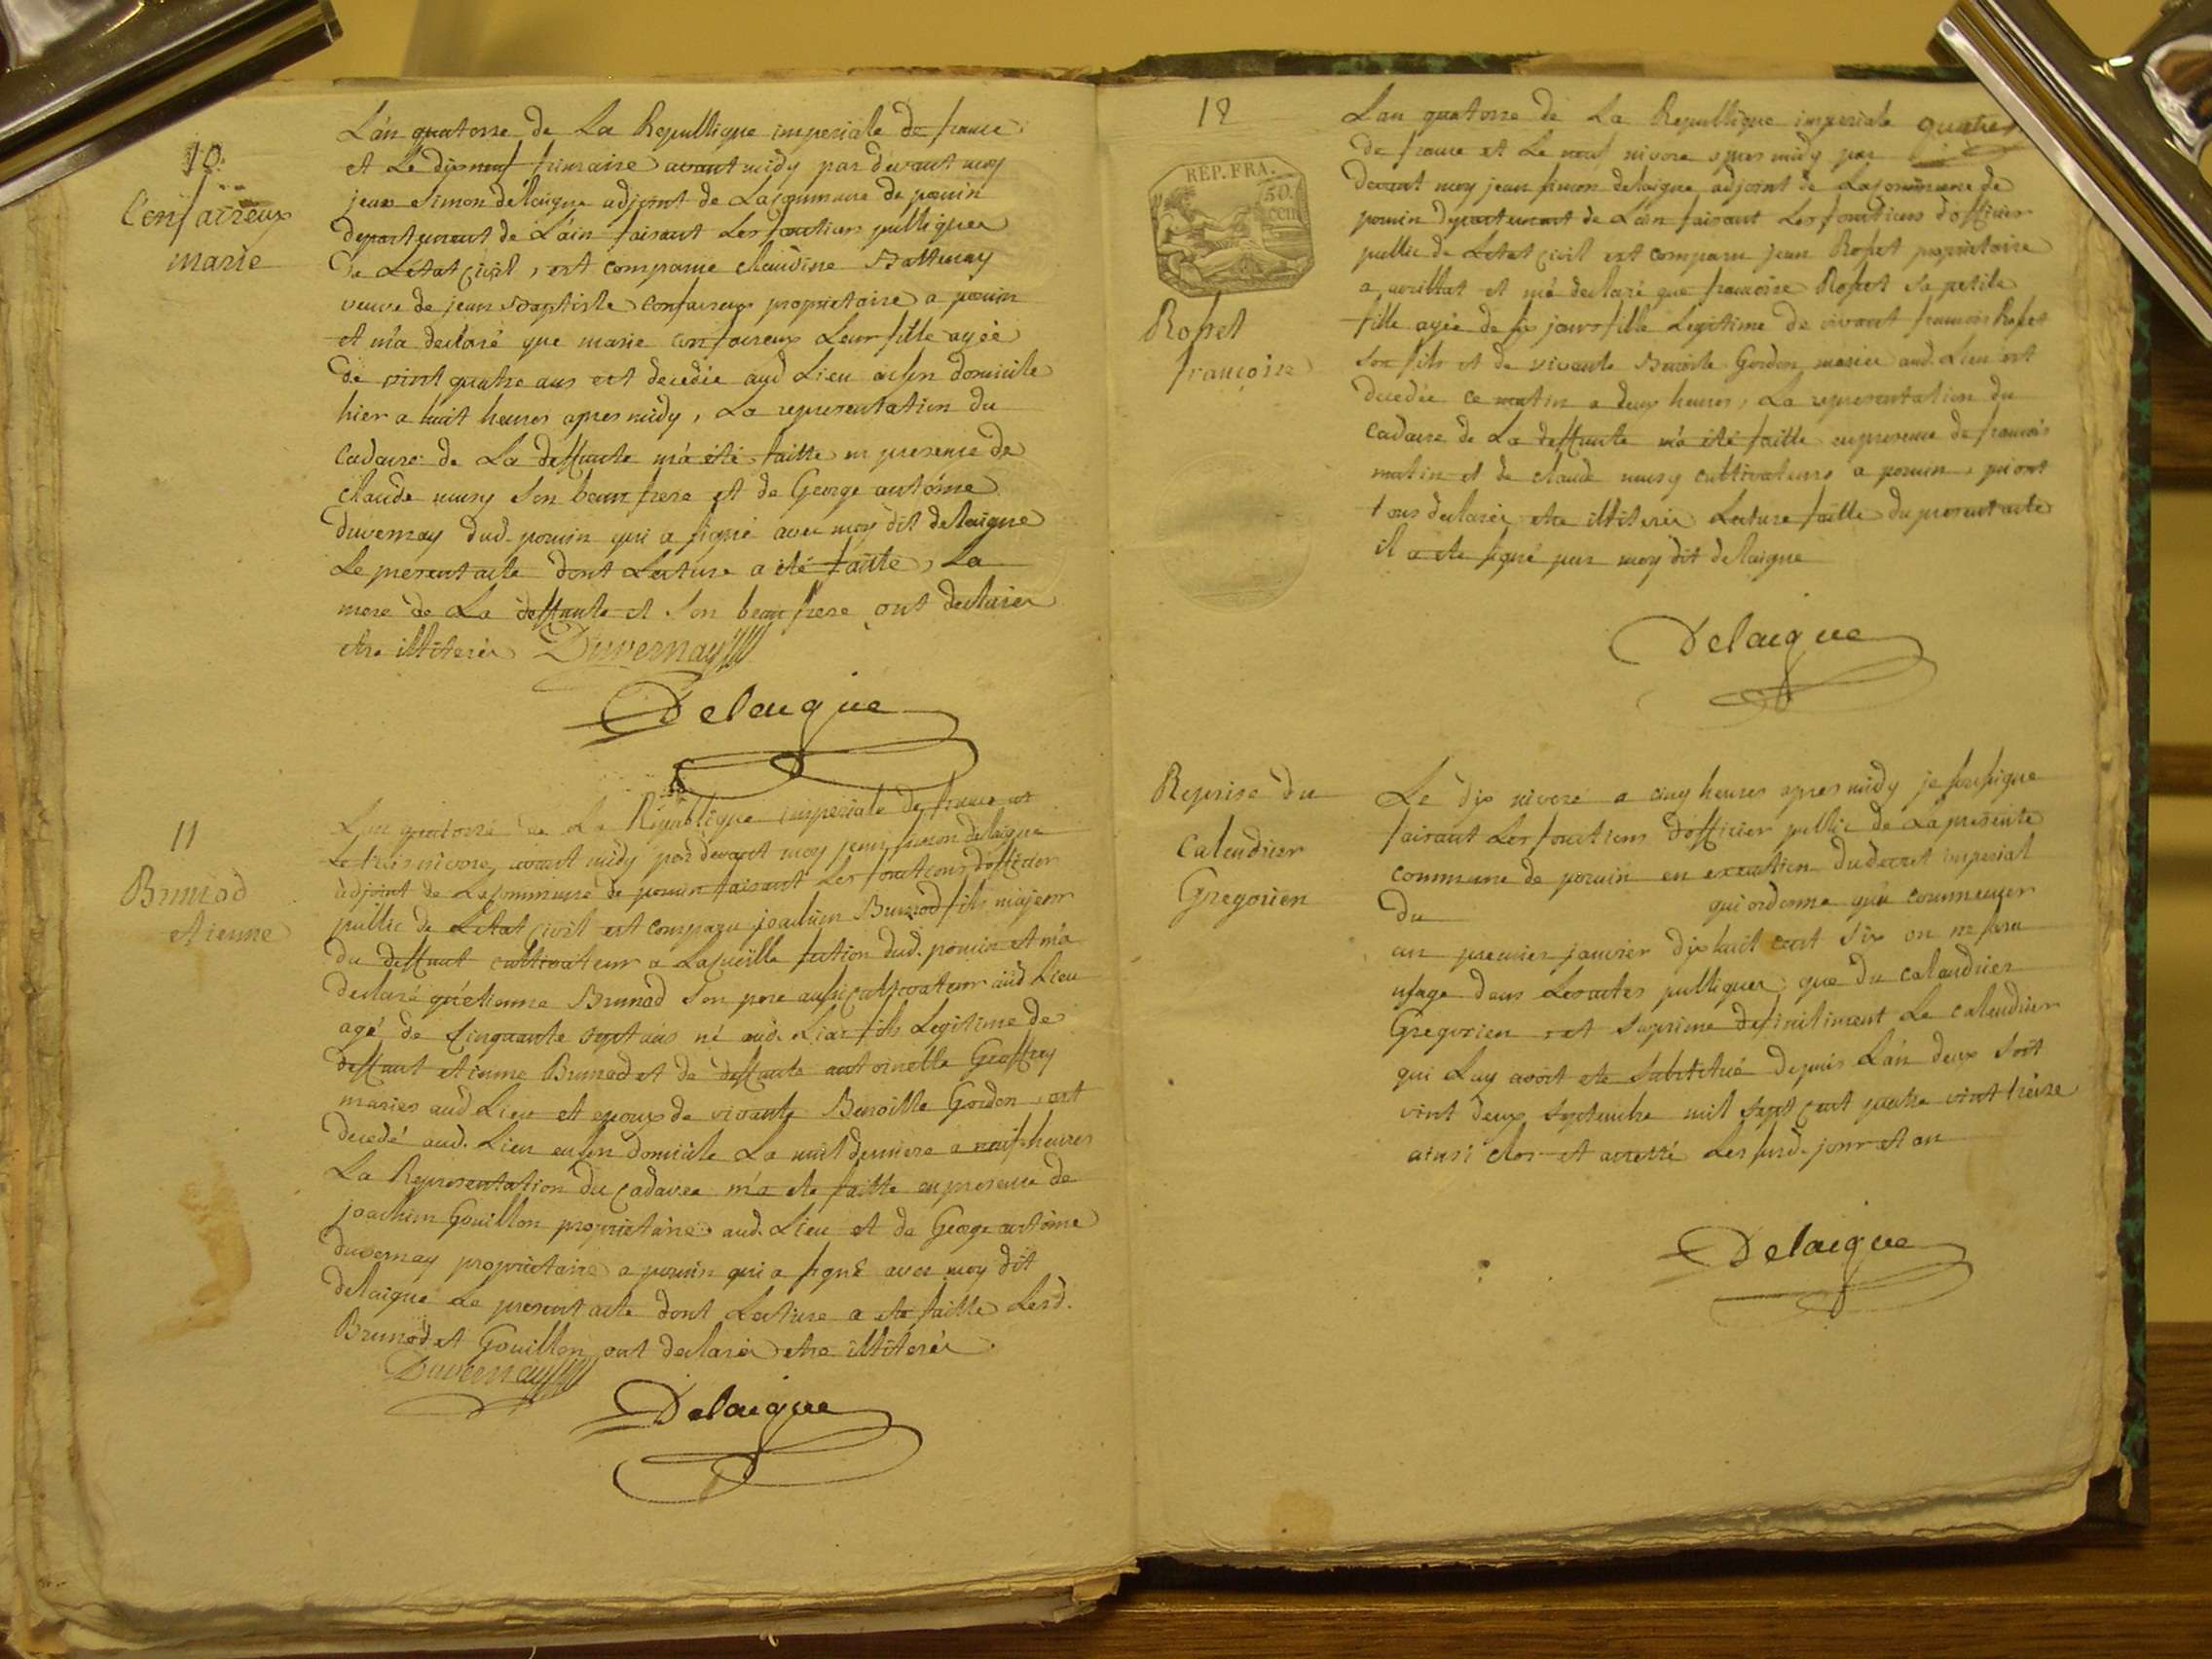 10
Confaireux
marie
L'an quatorse de La Republique imperiale de france
et Le dixneuf frimaire avant midy par devant moy
jean Simon delaigue adjoint de La commune de pouin
departement de L'ain faisant Les fonctions publiques
de L'état civil, est comparue claudine Battenay
veuve de jean Baptiste confaireux proprietaire a pouin
et m'a declaré que marie confaireux Leur fille agée
de vint quatre ans est decedée aud Lieu en son domicile
hier a huit heures apres midy, La representation du
Cadavre de La deffunte m'a été faitte en presence de
Claude mury Son beau frere et de George antoine
duvernay dud. pouin qui a signé avec moy dit delaigue
Le present acte dont Lecture a été faitte, La
mere de La deffunte et Son beau frere ont declarés
etre illiterés Duvernay
Delaigue
11
Brunod
etienne
L'an quatorse de La Republique imperiale de france et
Le trois nivose, avant midy par devant moy jean simon delaigue
adjoint de La commune de pouin faisant Les fonctions d'officier
public de L'etat civil est comparu joachim Brunod fils majeur
du deffunt cultivateur a Lacueille section dud. pouin et m'a
declaré qu'etienne Brunod Son pere aussi cultivateur aud Lieu
agé de Cinquante sept ans né aud. Lieu fils Legitime de
deffunt etienne Brunod et de deffunte antoinette Geoffrey
mariés aud Lieu et epoux de vivante Benoitte Gordon, est
decedé aud. Lieu en son domicile La nuit derniere a neuf heures
La Representation du Cadavre m'a ete faitte en presence de
joachim Gouillon proprietaire aud. Lieu et de George antoine
duvernay proprietaire a pouin qui a signé avec moy dit
delaigue Le present acte dont Lecture a ete faitte Lesd.
Brunod et Gouillon ont declarés etre illiterés
Duvernay
Delaigue
12
REP. FRA.
50.
cen
Rosset
françoise
Lan quatorse de La Republique imperiale
de france et Le neuf nivose apres midy par
devant moy jean simon delaigue adjoint de La commune de
pouin departement de L'ain faisant Les fonctions d'officier
public de L'etat civil est comparu jean Rosset proprietaire
a avrillat et m'a declaré que francoise Rosset Sa petite
fille agée de six jours fille Legitime de vivant francois Rosset
Son fils et de vivante Benoite Gordon mariés aud. Lieu est
decedée ce matin a deux heures, La representation du
Cadavre de La deffunte m'a été faitte en presence de francois
matin et de claude mury cultivateurs a pouin, qui ont
tous declarés etre illiterés Lecture faitte du present acte
il a ete signé par moy dit delaigue
Delaigue
Reprise du
Calendrier
Gregorien
Le dix nivose a cinq heures apres midy je soussigne
faisant Les fonctions d'officier public de La presente
commune de pouin en execution du decret imperial
du qui ordonne qu'a commencer
au premier janvier dix huit cent six on ne fera
usage dans Les actes publiques que du Calandrier
Gregorien, et suprime definitiment Le calendrier
qui Luy avoit ete Substitué depuis L'an deux soit
vint deux septembre mil sept cent quatre vint treise
ainsi clos et arretté Les susd. jour et an
Delaigue